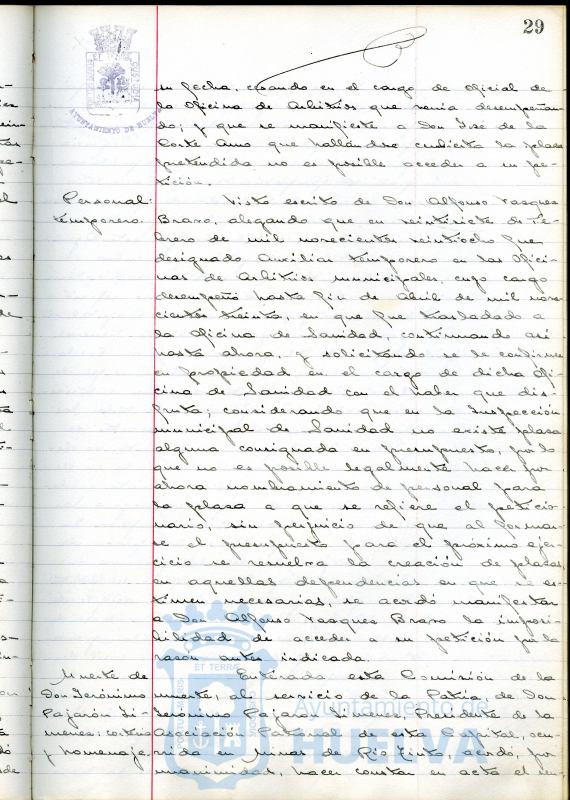 29
AYUNTAMIENTO DE HUELVA
su fecha, cesando en el cargo de Oficial de
la Oficina de Arbitrios que venia desempeñan-
do; y que se manifieste a Don José de la
Corte Amo que hallándose cubierta la plaza
pretendida no es posible acceder a su pe-
tición.
Personal:
temporero.
Visto escrito de Don Alfonso Vasques
Bravo, alegando que en veintisiete de Fe-
brero de mil novecientos veintiocho fue
designado Auxiliar temporero en las Ofici-
nas de Arbitrios municipales, cuyo cargo
desempeñó hasta fin de Abril de mil nove-
cientos treinta, en que fue trasladado a
la Oficina de Sanidad, continuando así
hasta ahora, y solicitando se le confirme
en propiedad en el cargo de dicha Ofi-
cina de Sanidad con el haber que dis-
fruta; considerando que en la Inspección
municipal de Sanidad no existe plaza
alguna consignada en presupuesto, por lo
que no es posible legalmente hacer por
ahora nombramiento de personal para
la plaza a que se refiere el peticio-
nario, sin perjuicio de que al formar-
se el presupuesto para el próximo ejer-
cicio se resuelva la creación de plazas
en aquellas dependencias en que se es-
timen necesarias, se acordó manifestar
a Don Alfonso Vasques Bravo la imposi-
bilidad de acceder a su petición por la
razon antes indicada.
Muerte de
Don Jerónimo
Pajarón Ji-
menes:
y homenaje.
Enterada esta Comisión de la
muerte, al servicio de la Patria de Don
Jeronimo Pajaron Jimenes, Presidente de la
Asociación Patronal de esta Capital, ocu-
rrida en Minas de Rio Tinto acordó, por
unanimidad, hacer constar en acta el sen-
ET TERRA
Ayuntamiento de
HUELVA